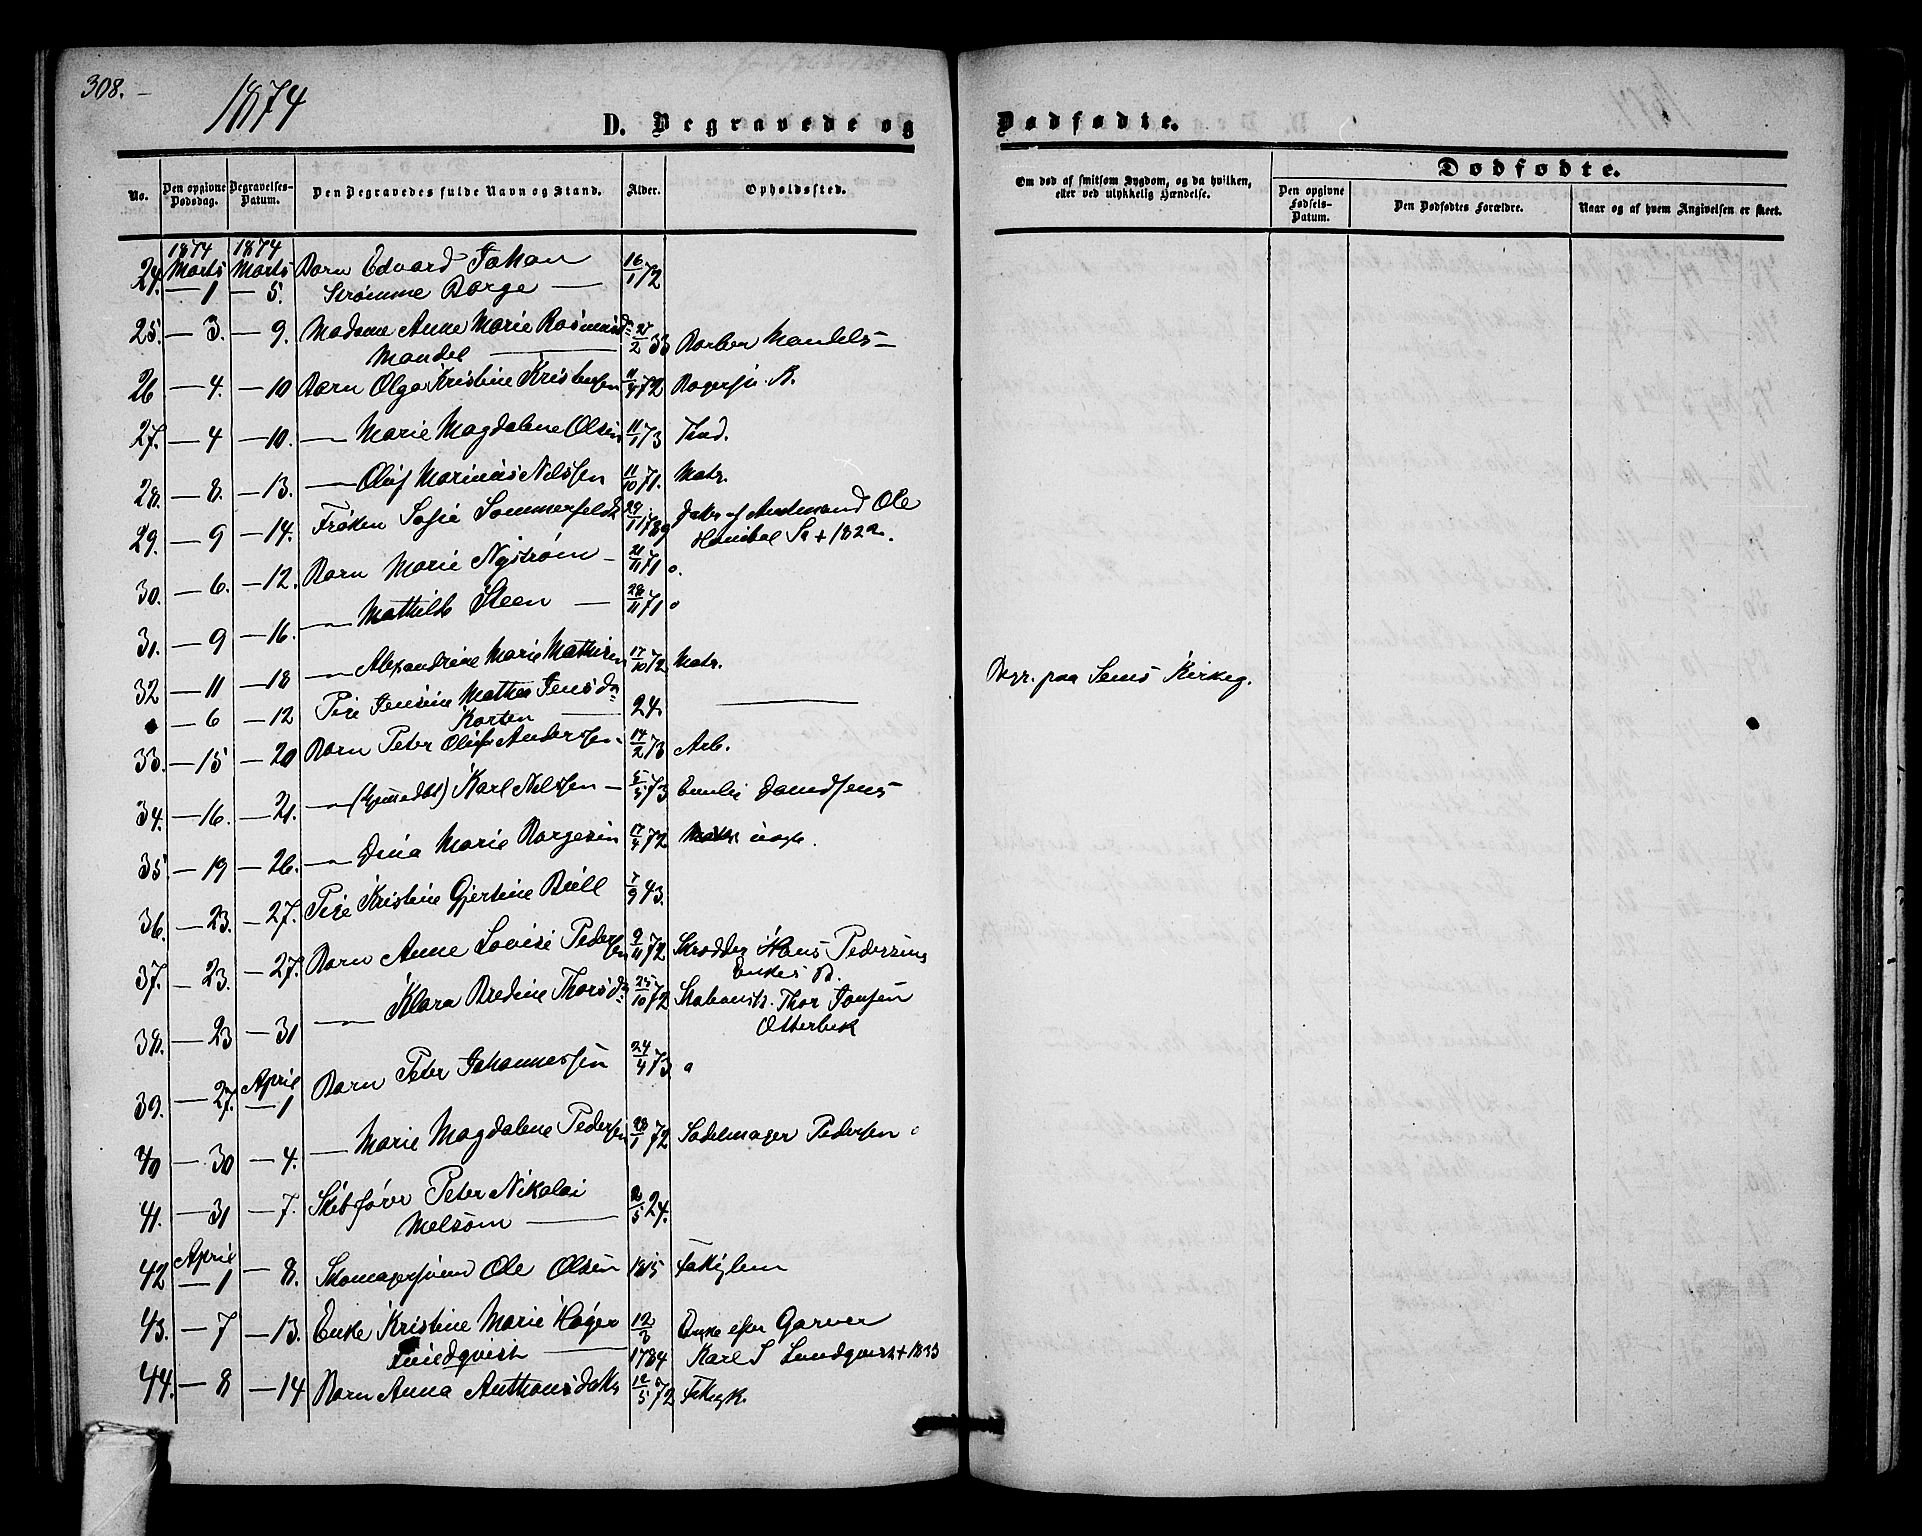 308. –
1874
D. Begravede og
Dødfødte.
No.
Den opgivne Dødsdag.
Begravelses-Datum.
Den Begravedes fulde Navn og Stand.
Alder.
Opholdssted.
Om død af smitsom Sygdom, og da hvilken, eller ved ulykkelig Hændelse.
Dødfødte.
Den opgivne Fødsels-Datum.
Den Dødfødtes Forældre.
Naar og af hvem Angivelsen er skeet.
1874 1874
24. Marts Marts Barn Edvard Johan 16/1 72
— 1 — 5. Strømme Borge —
25. — 3. — 9. Madame Anne Marie Rasmusd. 27/2 33 Barber Mandels –
Mandel —
26 — 4. — 10 Barn Olga Kristine Kristensen 11/4 72
27. — 4 — 10. — Marie Magdalene Olsen 11/1 73
28. — 8. — 13. — Oluf Marinius Nilssen 11/10 71. Matr.
29. — 9 — 14. Frøken Sofie Sommerfeldt 29/11 1789 Datr af Amtmand Ole
Hanibal S. + 182
30. — 6. — 12. Barn Marie Nystrøm – 21/11 71
31. — 9 — 16. — Mathilde Steen — 28/11 71
32 — 11 — 18 — Alexandrine Marie Mathisen 17/10 72 Matr.
— 6 — 12 Pige Jensine Mathea Jensda 24. —
Karten —
Begr. paa Sems Kirkeg.
33. — 15 — 20 Barn Peter Oluf Andersen – 14/2 73 Arb.
34. — 16. — 21. — Karl Nilssen – 5/5 73 Emilie Davidsens
35 — 19 — 26. — Dina Marie Borgesen 17/4 72
36. — 23. — 27. Pige Kristine Gjertine Bull 7/9 43.
37. — 23. — 27. Barn Anne Lovise Pedersen 9/11 72 Skrædder Hans Pedersens
Enkes B.
38. — 23 — 31 — Klara Bredine Thorsda 25/10 72 Thor Jonsen
Otterbek
39. — 27. April — 1 Barn Peter Johannessen 24/4 73
40 — 30 — 4. — Marie Magdalene Pedersen 28/1 72 Sadelmager Pedersen
41. — 31 — 7. Skibsfører Peter Nikolai 2/5 24.
Melsom —
42 April — 1 — 8. Ole Olsen 1815
43. — 7 — 13. Enke Kristine Marie Høyer 12/3 Enke efter Garver
— 1784 Karl S Lundqvist + 1833
44. — 8 — 14 Barn Anna Anthonisdatr 12/5 72